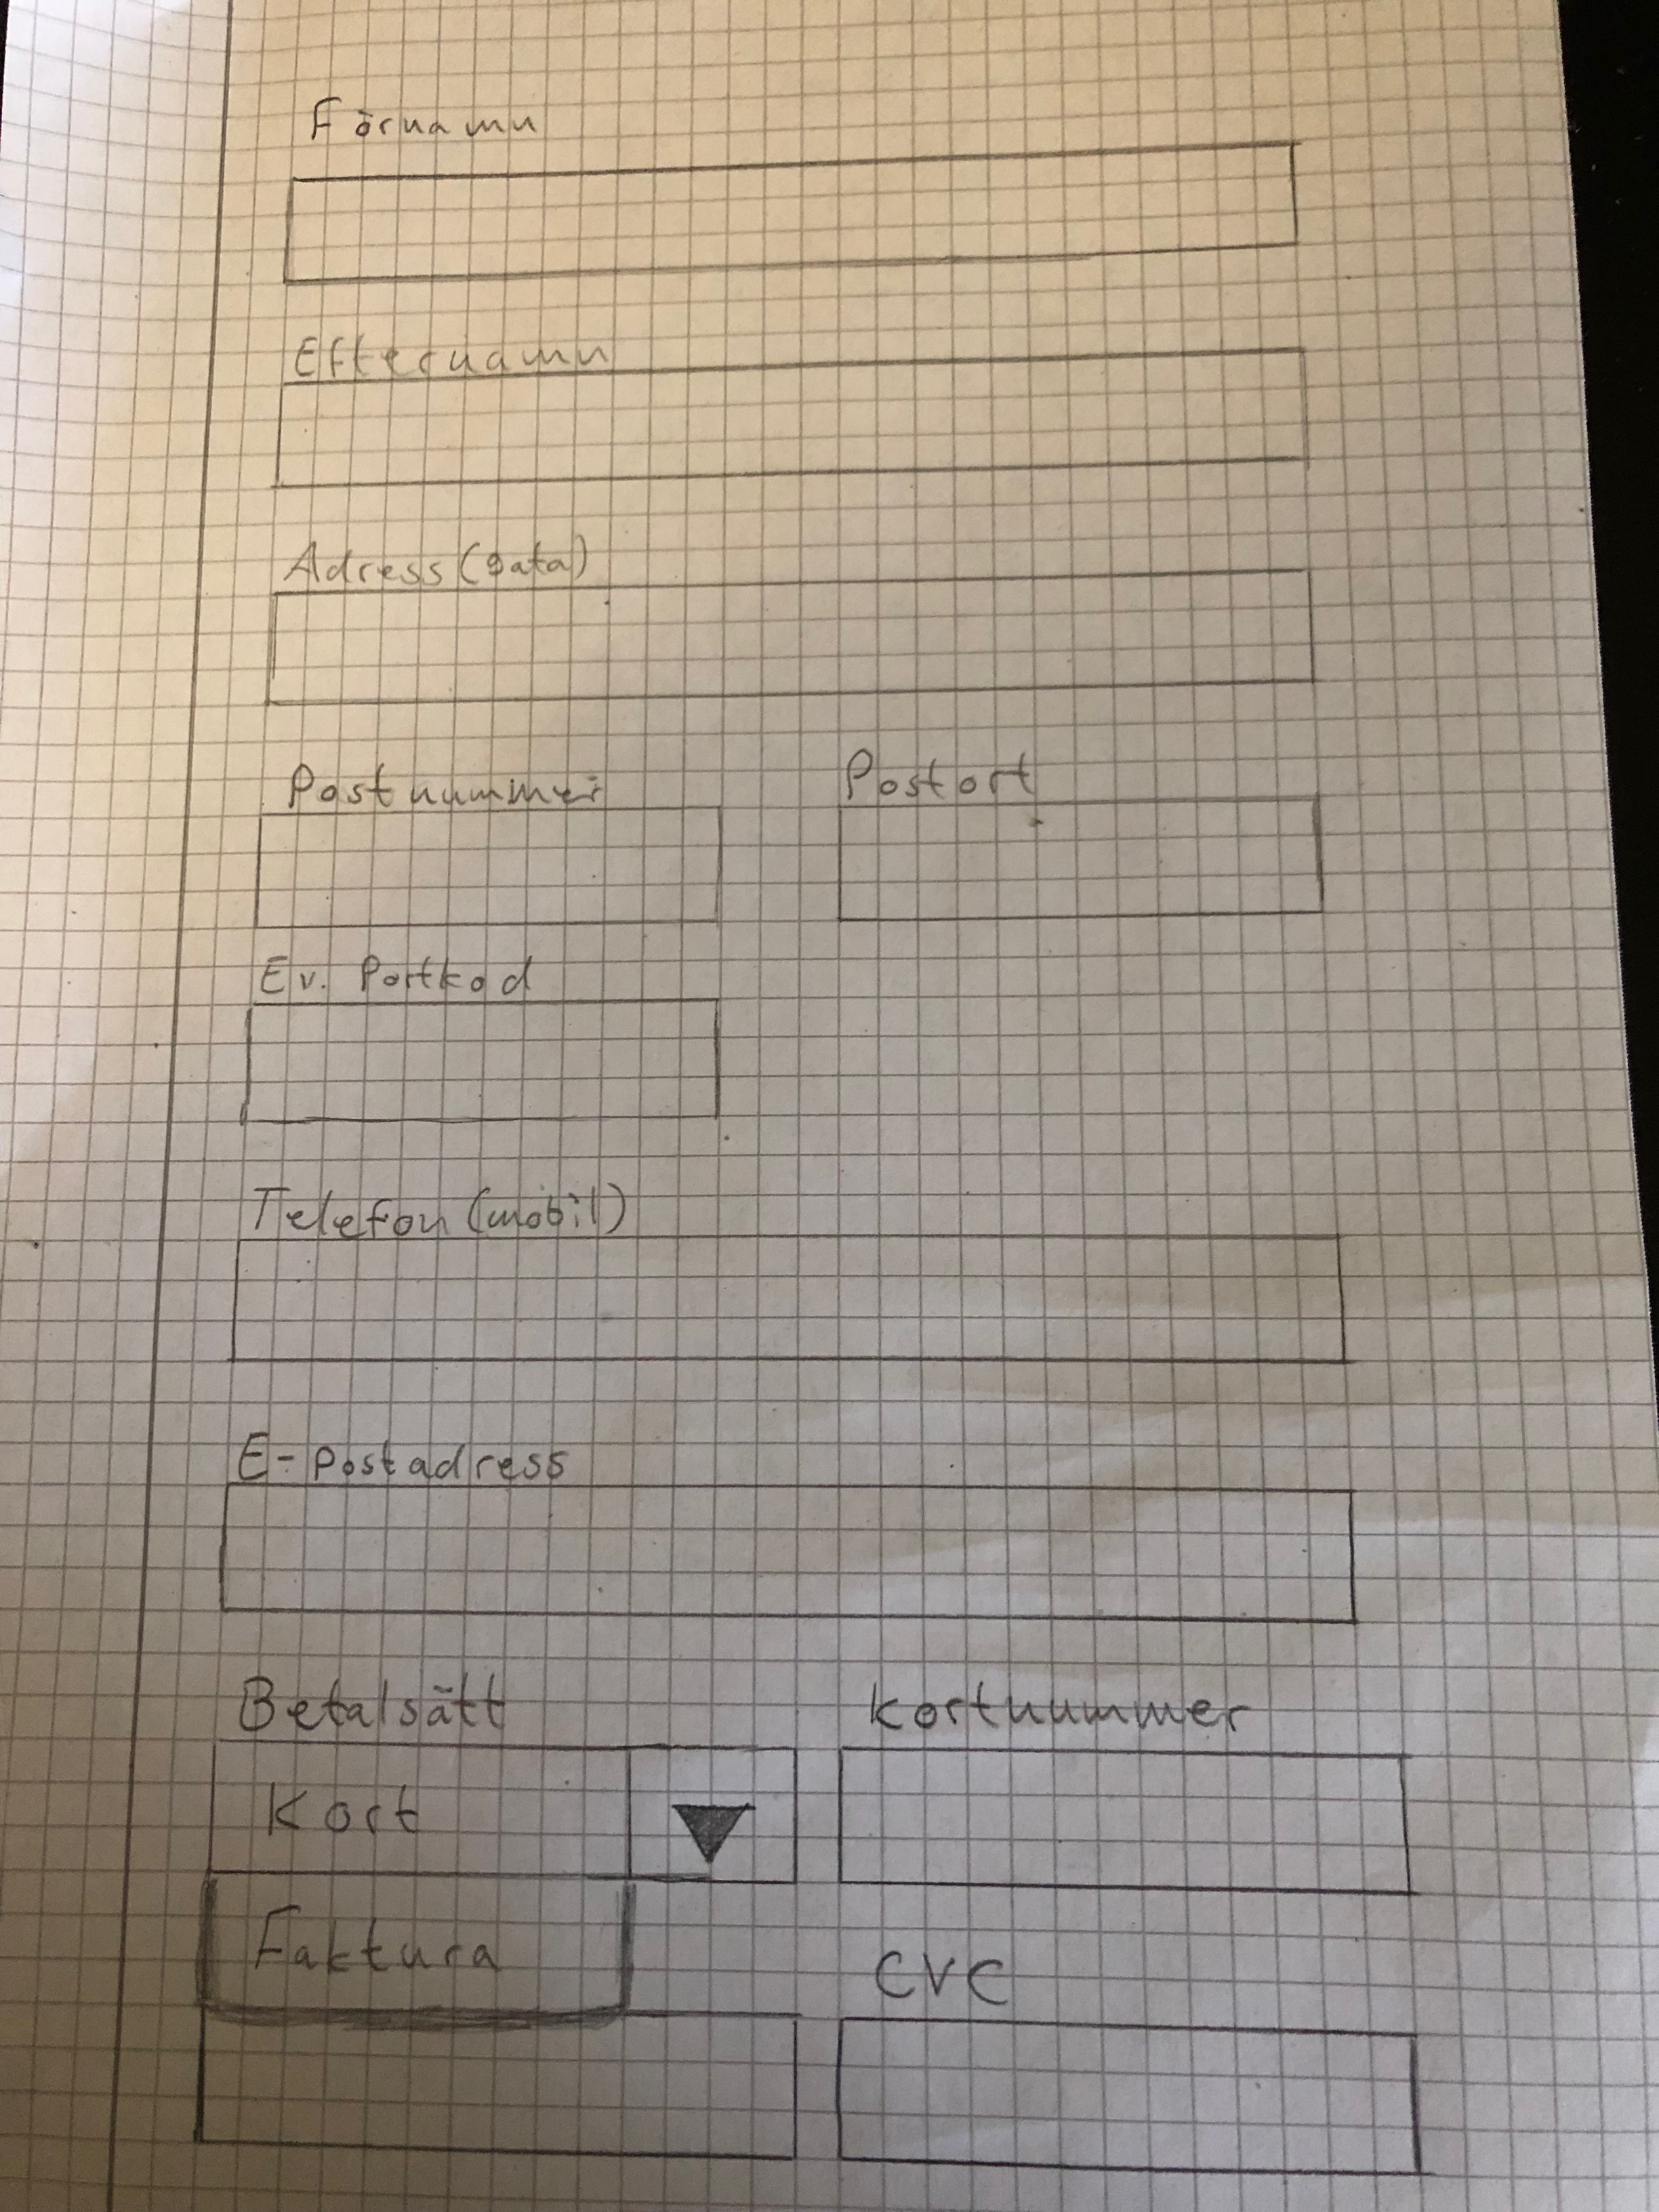 Förnamn
Efternamn
Adress (gata)
Postnummer Postort
Ev. Portkod
Telefon (mobil)
E-postadress
Betalsätt Kortnummer
Kort
Faktura
CVC